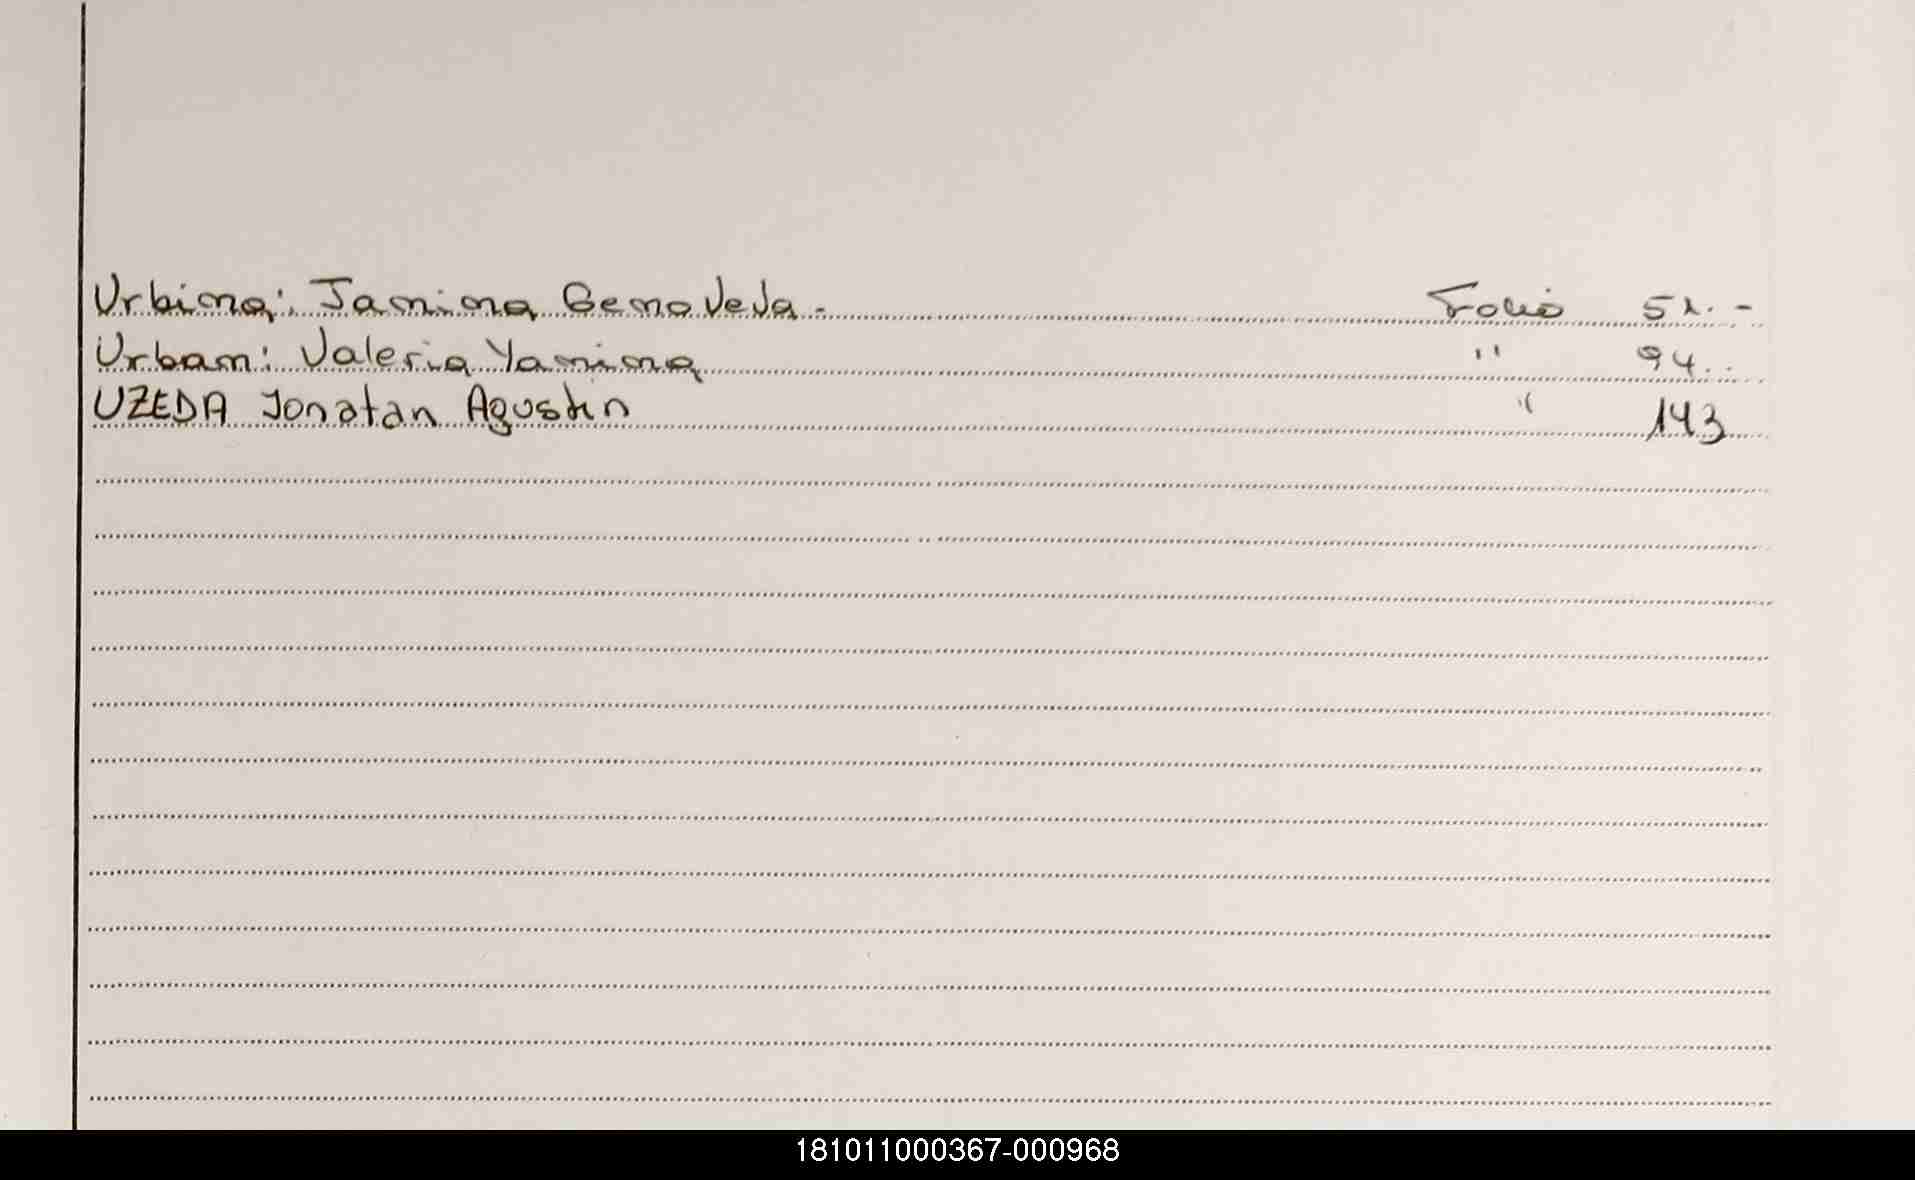 Urbina: Janina Genoveva.- Folio 52.-
Urban: Valeria Yanina " 94..
UZEDA Jonatan Agustin " 143
181011000367-000968